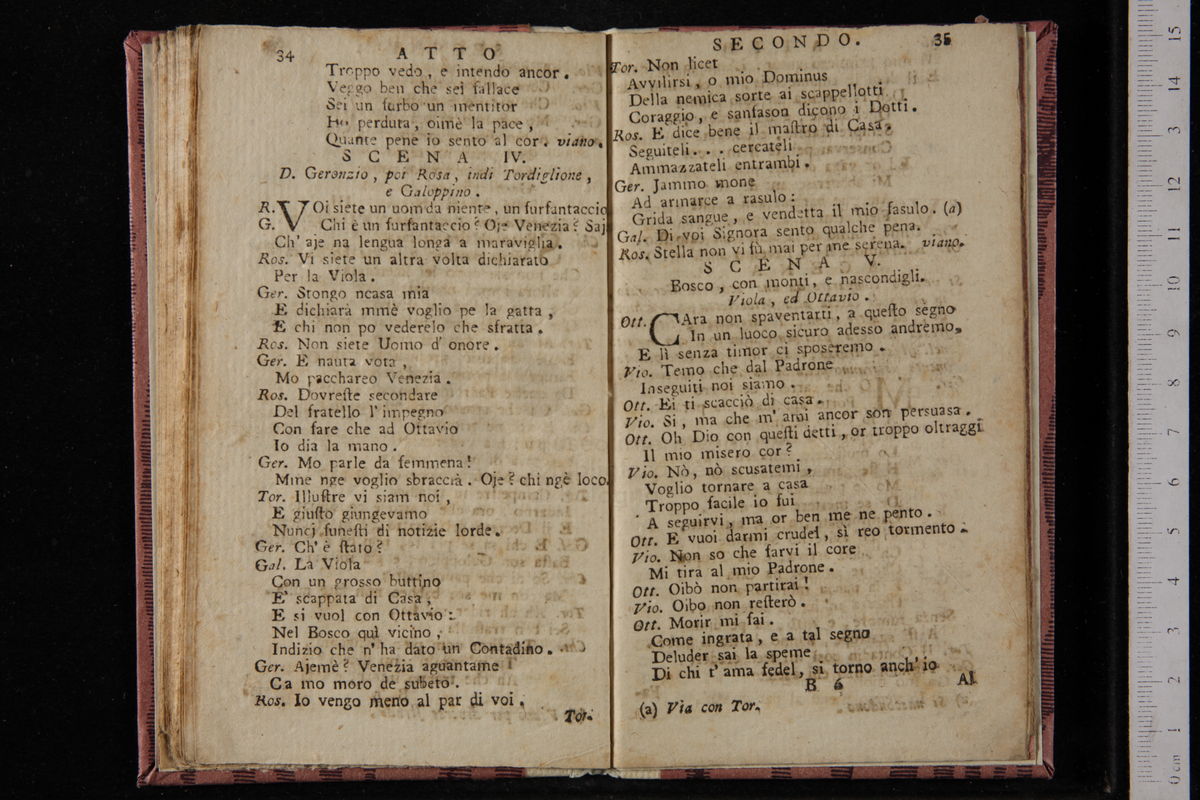 34 ATTO
Troppo vedo, e intendo ancor.
Veggo ben che sei fallace
Sei un furbo un mentitor
Ho perduta, oimè la pace,
Quante pene io sento al cor. viano.
SCENA IV.
D. Geronzio, poi Rosa, indi Tordiglione,
e Galoppino.
R. VOi siete un uom da niente, un furfantaccio
G. Chi è un furfantaccio? Oje Venezia? Saj
Ch' aje na lengua longa a maraviglia.
Ros. Vi siete un altra volta dichiarato
Per la Viola.
Ger. Stongo ncasa mia
E dichiarà mmè voglio pe la gatta,
E chi non po vederelo che sfratta.
Ros. Non siete Uomo d' onore.
Ger. E nauta vota,
Mo pacchareo Venezia.
Ros. Dovreſte secondare
Del fratello l' impegno
Con fare che ad Ottavio
Io dia la mano.
Ger. Mo parle da femmena!
Mme nge voglio sbraccià. Oje? chi ngè loco
Tor. Illuſtre vi siam noi,
E giuſto giungevamo
Nuncj funeſti di notizie lorde.
Ger. Ch' è ſtato?
Gal. La Viola
Con un grosso buttino
E' scappata di Casa,
E si vuol con Ottavio:
Nel Bosco quì vicino,
Indizio che n' ha dato un Contadino.
Ger. Ajemè? Venezia aguantame
Ca mo moro de subeto.
Ros. Io vengo meno al par di voi.
Tor.
SECONDO. 35
Tor. Non licet
Avvilirsi, o mio Dominus
Della nemica sorte ai scappellotti
Coraggio, e sanfason diçono i Dotti.
Ros. E dice bene il maſtro di Casa.
Seguiteli... cercateli
Ammazzateli entrambi.
Ger. Jammo mone
Ad armarce a rasulo:
Grida sangue, e vendetta il mio fasulo. (a)
Gal. Di voi Signora sento qualche pena.
Ros. Stella non vi fù mai per me serena. viano.
SCENA V.
Bosco, con monti, e nascondigli.
Viola, ed Ottavio.
Ott. CAra non spaventarti, a queſto segno
In un luoco sicuro adesso andremo,
E lì senza timor ci sposeremo.
Vio. Temo che dal Padrone
Inseguiti noi siamo.
Ott. Ei ti scacciò di casa.
Vio. Si, ma che m' ami ancor son persuasa.
Ott. Oh Dio con queſti detti, or troppo oltraggi
Il mio misero cor?
Vio. Nò, nò scusatemi,
Voglio tornare a casa
Troppo facile io fui
A seguirvi, ma or ben me ne pento.
Ott. E vuoi darmi crudel, sì reo tormento.
Vio. Non so che farvi il core
Mi tira al mio Padrone.
Ott. Oibò non partirai!
Vio. Oibo non reſterò.
Ott. Morir mi fai.
Come ingrata, e a tal segno
Deluder sai la speme
Di chi t' ama fedel, si torno anch' io
B 6 Al
(a) Via con Tor.